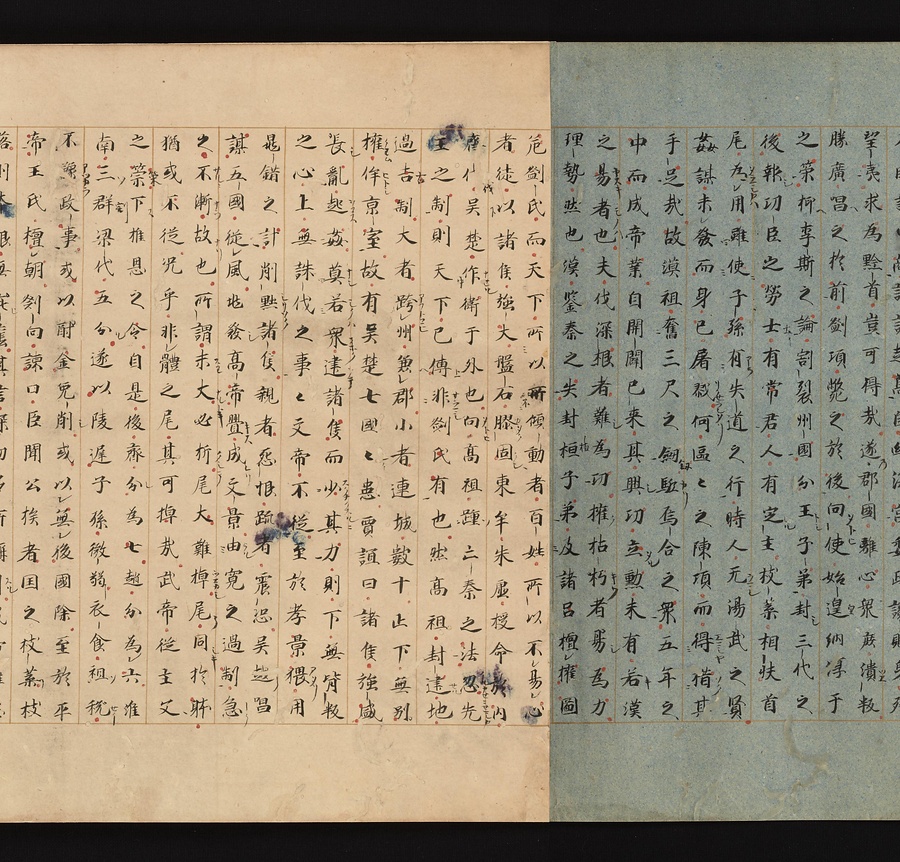 望夷求為黔首豈可得哉遂郡國離心衆庶潰叛
勝廣昌之於前劉項斃之於後向使始皇納淳于
之策抑李斯之論割裂州國分王子弟封三代之
後報功臣之勞士有常君人有定主枝葉相扶首
尾為用雖使子孫有失道之行時人无湯武之賢
姧謀未發而身已屠戮何區々之陳項而得措其
手足哉故漢祖奮三尺之劔駈烏合之衆五年之
中而成帝業自開闢已来其興功立勲未有若漢
之易者也夫伐深根者難為功摧枯朽者易為力
理勢然也漢鑒秦之失封桓子弟及諸呂擅權圖
危劉氏而天下所以所傾動者百姓所以不易心
者徒以諸侯強大盤石膠固東牟朱虛授命於内
齊代吴楚作衛于外也向高祖踵亡秦之法忽先
王之制則天下已傳非劉氏有也然高祖封建地
過古制大者跨州兼郡小者連城數十上下無別
權侔京室故有吴楚七國之患賈誼曰諸侯強盛
長亂起姧莫若衆建諸侯而少其力則下無背叛
之心上無誅伐之事々文帝不從至於孝景猥用
晁錯之計削黜諸侯親者怨恨踈者震恐吴楚唱
謀五國從風兆發高帝舋成文景由寛之過制急
之不漸故也所謂末大必折尾大難掉尾同於體
猶或不從況乎非體之尾其可掉哉武帝從主父
之策下推恩之令自是後齊分為七趙分為六淮
南三群梁代五分遂以陵遅子孫微弱衣食租稅
不豫政事或以酎金免削或以無後國除至於平
帝王氏擅朝劉向諫曰臣聞公族者国之枝葉枝